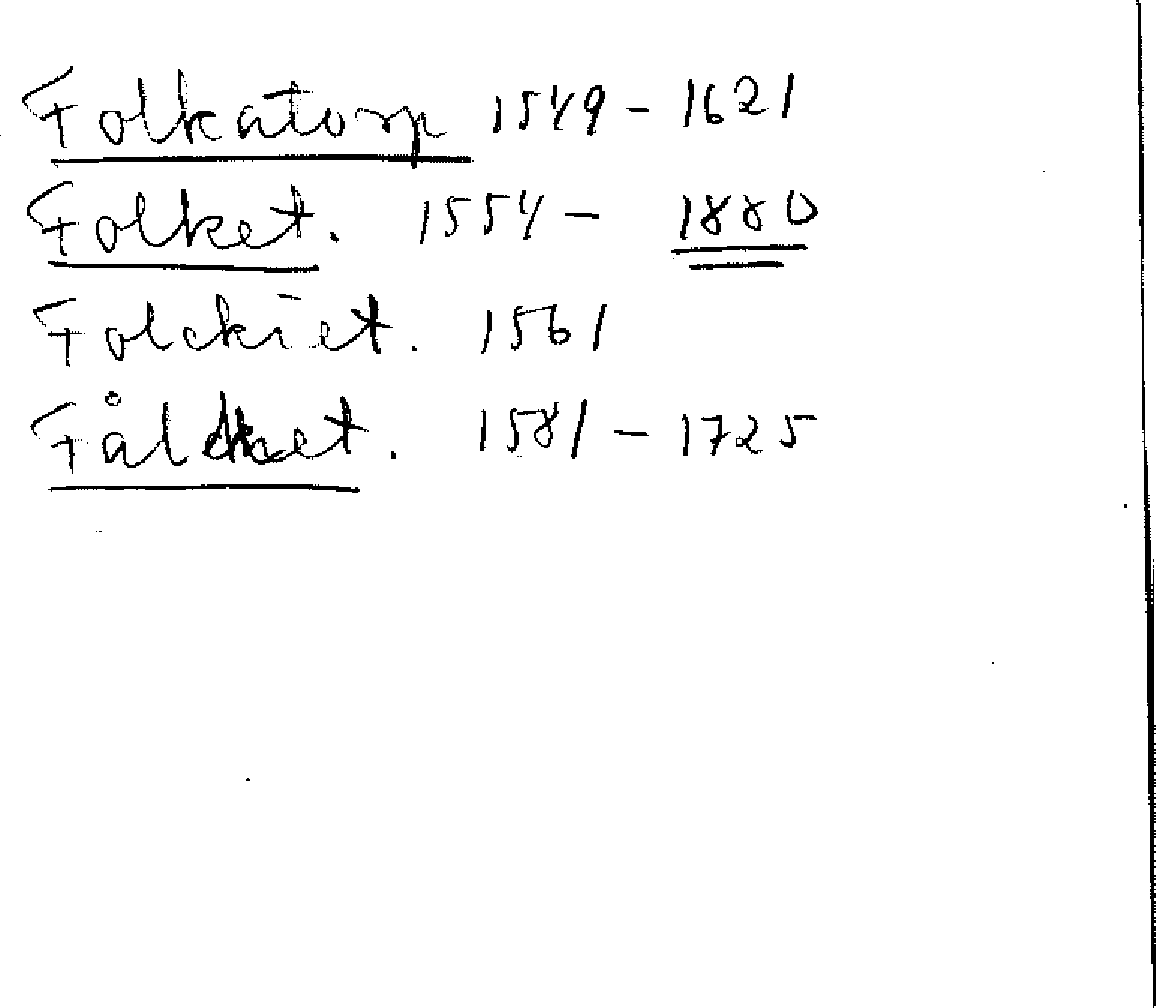 Folkatorp 1549 - 1621
Folket. 1554 - 1880
Folckiet. 1561
Fålket. 1581 - 1725